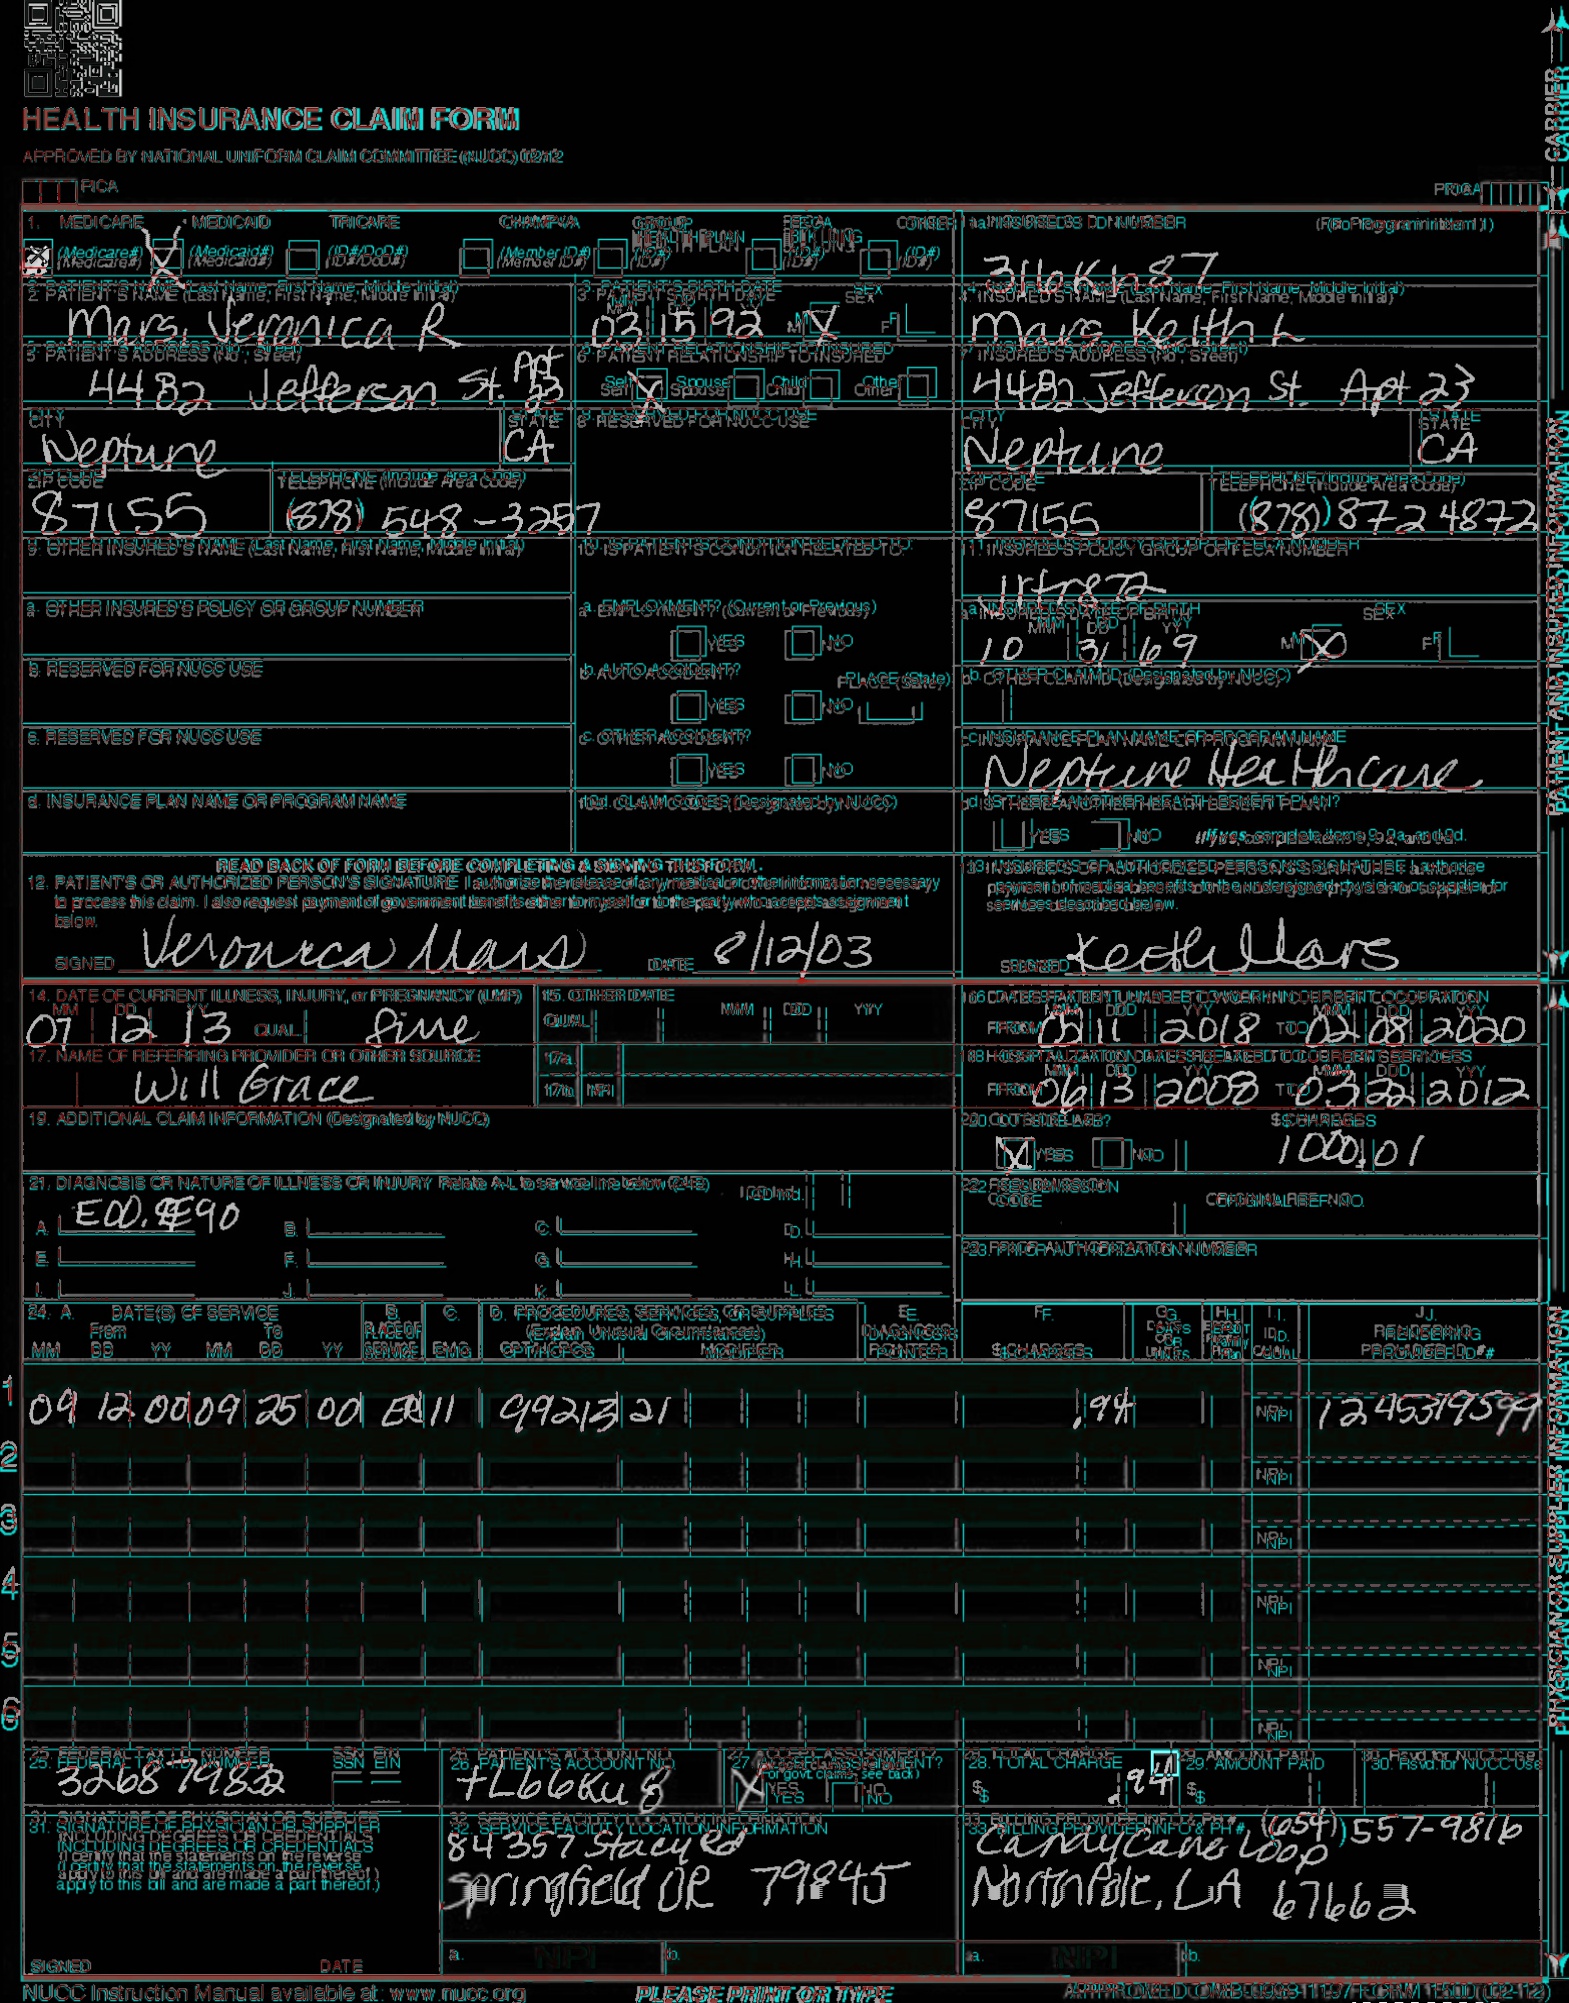 HEALTH INSURANCE CLAIM FORM
APPROVED BY NATIONAL UNIFORM CLAIM COMMITTEE (NUCC) 02/12
PICA
PICA
CARRIER
1. MEDICARE MEDICAID TRICARE CHAMPVA GROUP HEALTH PLAN FECA BLK LUNG OTHER
(Medicare#) (Medicaid#) (ID#/DoD#) (Member ID#) (ID#) (ID#) (ID#)
1a. INSURED'S I.D. NUMBER (For Program in Item 1)
316Kh87
2. PATIENT'S NAME (Last Name, First Name, Middle Initial)
Mars, Veronica R
3. PATIENT'S BIRTH DATE SEX
MM DD YY
03 15 92 M F
4. INSURED'S NAME (Last Name, First Name, Middle Initial)
Mars Keith L
5. PATIENT'S ADDRESS (No., Street)
4482 Jefferson St. Apt 23
6. PATIENT RELATIONSHIP TO INSURED
Self Spouse Child Other
7. INSURED'S ADDRESS (No., Street)
4482 Jefferson St. Apt 23
CITY STATE
Neptune CA
8. RESERVED FOR NUCC USE
CITY STATE
Neptune CA
ZIP CODE TELEPHONE (Include Area Code)
87155 (878) 548-3257
ZIP CODE TELEPHONE (Include Area Code)
87155 (878) 872 4872
9. OTHER INSURED'S NAME (Last Name, First Name, Middle Initial)
10. IS PATIENT'S CONDITION RELATED TO:
11. INSURED'S POLICY GROUP OR FECA NUMBER
a. OTHER INSURED'S POLICY OR GROUP NUMBER
a. EMPLOYMENT? (Current or Previous)
YES NO
a. INSURED'S DATE OF BIRTH SEX
MM DD YY
10 31 69 M F
b. RESERVED FOR NUCC USE
b. AUTO ACCIDENT? PLACE (State)
YES NO
b. OTHER CLAIM ID (Designated by NUCC)
c. RESERVED FOR NUCC USE
c. OTHER ACCIDENT?
YES NO
c. INSURANCE PLAN NAME OR PROGRAM NAME
Neptune Healthcare
d. INSURANCE PLAN NAME OR PROGRAM NAME
10d. CLAIM CODES (Designated by NUCC)
d. IS THERE ANOTHER HEALTH BENEFIT PLAN?
YES NO If yes, complete items 9, 9a, and 9d.
PATIENT AND INSURED INFORMATION
READ BACK OF FORM BEFORE COMPLETING & SIGNING THIS FORM.
12. PATIENT'S OR AUTHORIZED PERSON'S SIGNATURE I authorize the release of any medical or other information necessary
to process this claim. I also request payment of government benefits either to myself or to the party who accepts assignment
below.
SIGNED Veronica Mars DATE 8/12/03
13. INSURED'S OR AUTHORIZED PERSON'S SIGNATURE I authorize
payment of medical benefits to the undersigned physician or supplier for
services described below.
SIGNED Keith Mars
14. DATE OF CURRENT ILLNESS, INJURY, or PREGNANCY (LMP)
MM DD YY
07 12 13 QUAL.
15. OTHER DATE
QUAL. MM DD YY
16. DATES PATIENT UNABLE TO WORK IN CURRENT OCCUPATION
MM DD YY MM DD YY
FROM 05 11 2018 TO 02 08 2020
17. NAME OF REFERRING PROVIDER OR OTHER SOURCE
Will Grace
17a.
17b. NPI
18. HOSPITALIZATION DATES RELATED TO CURRENT SERVICES
MM DD YY MM DD YY
FROM 06 13 2008 TO 03 22 2012
19. ADDITIONAL CLAIM INFORMATION (Designated by NUCC)
20. OUTSIDE LAB? $ CHARGES
YES NO 1000 01
21. DIAGNOSIS OR NATURE OF ILLNESS OR INJURY Relate A-L to service line below (24E) ICD Ind.
A. B. C. D.
E. F. G. H.
I. J. K. L.
22. RESUBMISSION CODE ORIGINAL REF. NO.
23. PRIOR AUTHORIZATION NUMBER
24. A. DATE(S) OF SERVICE B. C. D. PROCEDURES, SERVICES, OR SUPPLIES E. F. G. H. I. J.
From To PLACE OF (Explain Unusual Circumstances) DIAGNOSIS DAYS OR EPSDT ID. RENDERING
MM DD YY MM DD YY SERVICE EMG CPT/HCPCS MODIFIER POINTER $ CHARGES UNITS Family Plan QUAL. PROVIDER ID. #
1 09 12 00 09 25 00 ER 11 99213 21 .94 NPI 1245319599
2 NPI
3 NPI
4 NPI
5 NPI
6 NPI
PHYSICIAN OR SUPPLIER INFORMATION
25. FEDERAL TAX I.D. NUMBER SSN EIN
3268 79832
26. PATIENT'S ACCOUNT NO.
7L66Ku8
27. ACCEPT ASSIGNMENT?
(For govt. claims, see back)
YES NO
28. TOTAL CHARGE
$ .94
29. AMOUNT PAID
$
30. Rsvd for NUCC Use
31. SIGNATURE OF PHYSICIAN OR SUPPLIER
INCLUDING DEGREES OR CREDENTIALS
(I certify that the statements on the reverse
apply to this bill and are made a part thereof.)
SIGNED DATE
32. SERVICE FACILITY LOCATION INFORMATION
84357 Stacy Rd
Springfield OR 79845
a. NPI b.
33. BILLING PROVIDER INFO & PH # (654) 557-9816
Candycane Loop
North Pole, LA 67662
a. NPI b.
NUCC Instruction Manual available at: www.nucc.org
PLEASE PRINT OR TYPE
APPROVED OMB-0938-1197 FORM 1500 (02-12)